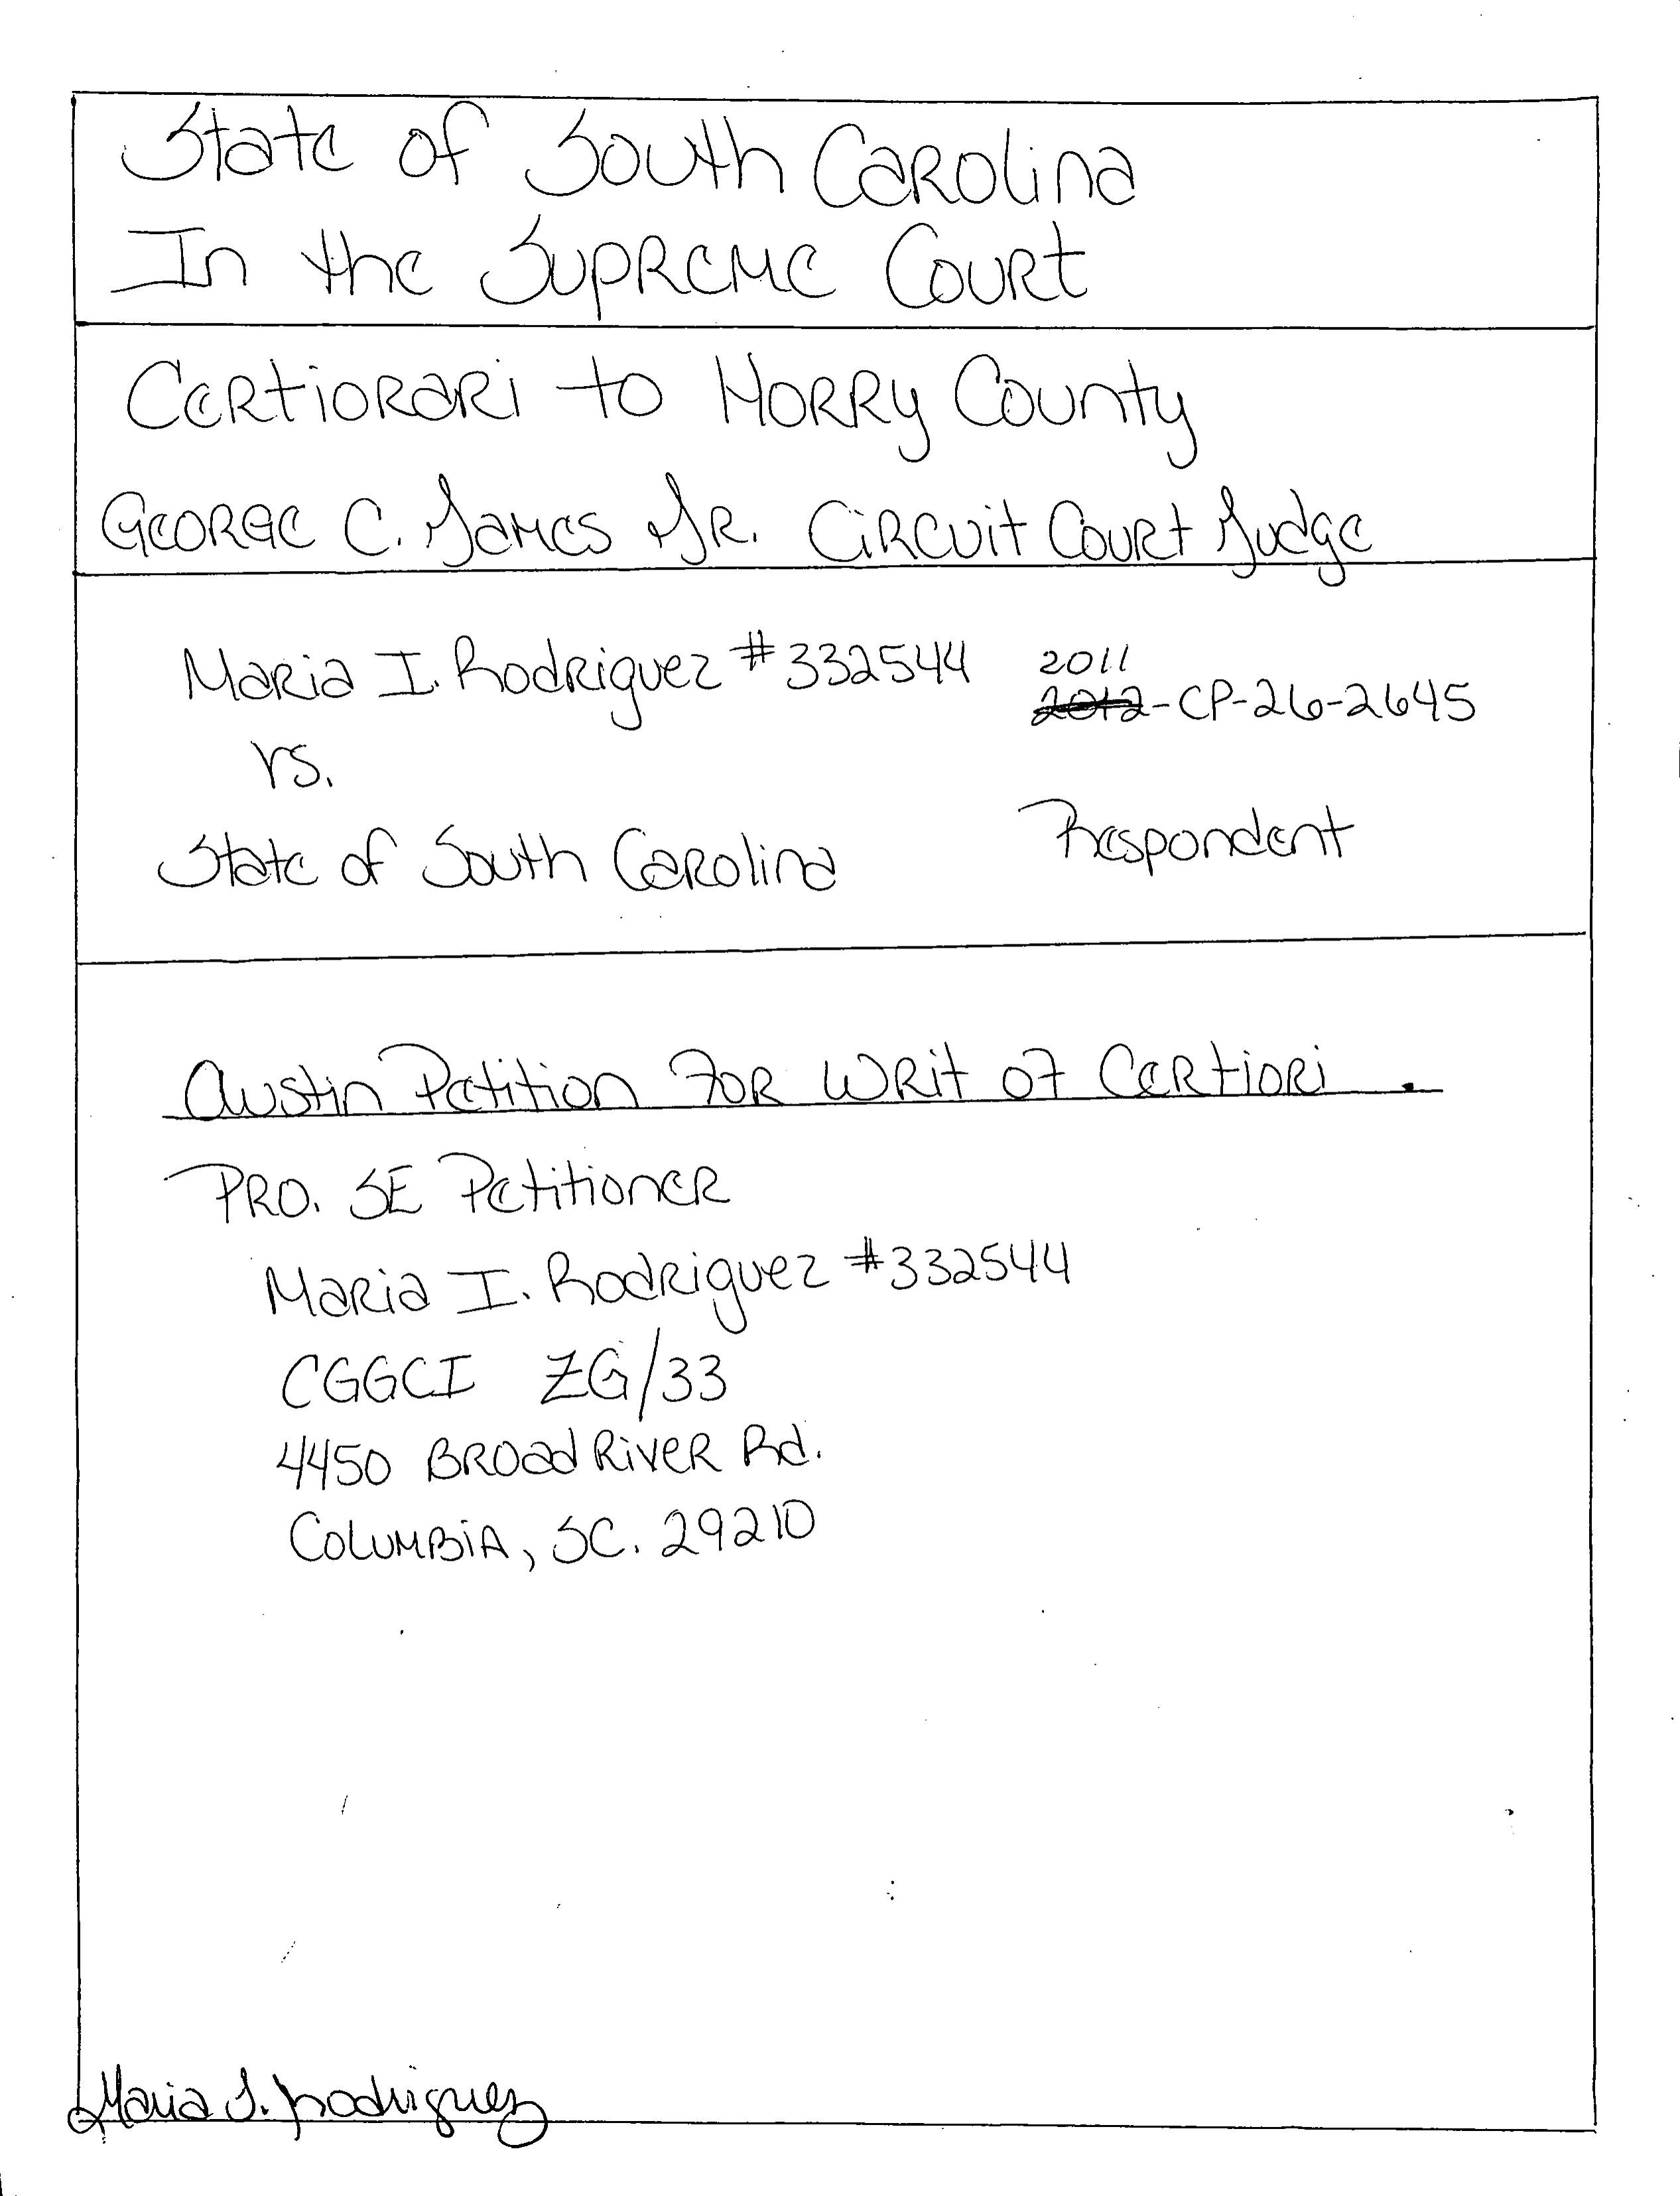 State of South Carolina
In the Supreme Court
Certiorari to Horry County
George C. James Jr. Circuit Court Judge
Maria I. Rodriguez #332544
2011
2012-CP-26-2645
vs.
State of South Carolina Respondent
Austin Petition For Writ of Certiori.
Pro. SE Petitioner
Maria I. Rodriguez #332544
CGGCI ZG/33
4450 Broad River Rd.
Columbia, SC. 29210
Maria I. Rodriguez